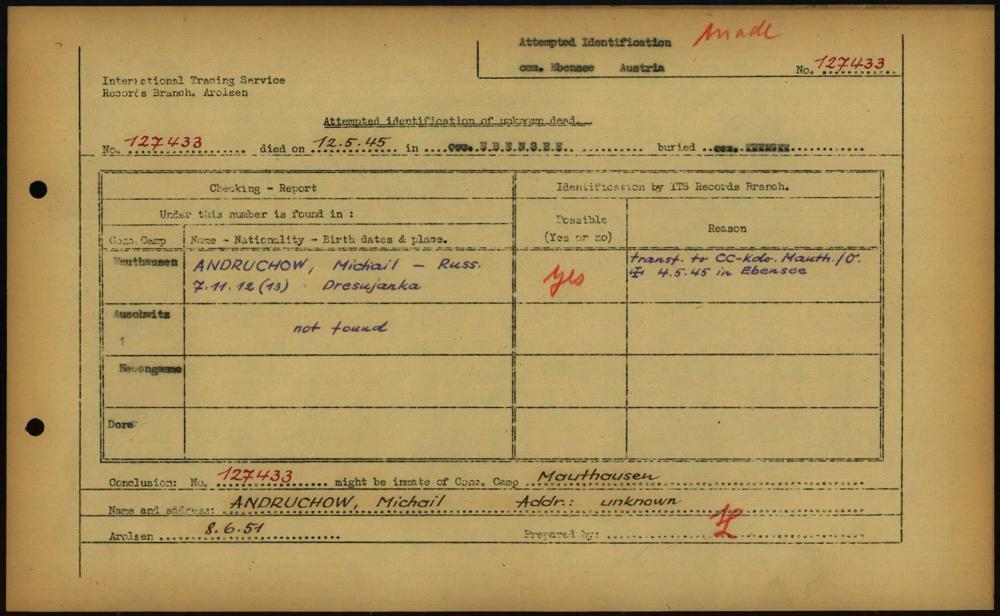 Attempted Identification made
cem. Ebensee Austria
No. 127433
International Tracing Service
Records Branch. Arolsen
Attempted identification of unknown dead.
No. 127433 died on 12.5.45 in cem. EBENSEE buried cem. EBENSEE
Checking - Report
Identification by ITS Records Branch.
Under this number is found in :
Possible
(Yes or no)
Reason
Conc. Camp Name - Nationality - Birth dates & place.
Mauthausen ANDRUCHOW, Michail - Russ. yes transf. to CC-Kdo. Mauth./O.
7.11.12 (13) Dresujanka 4.5.45 in Ebensee
Auschwitz not found
1
Neuengamme
Dora
Conclusion: No. 127433 might be inmate of Conc. Camp Mauthausen
Name and address: ANDRUCHOW, Michail Addr.: unknown
Arolsen 8.6.51 Prepared by: